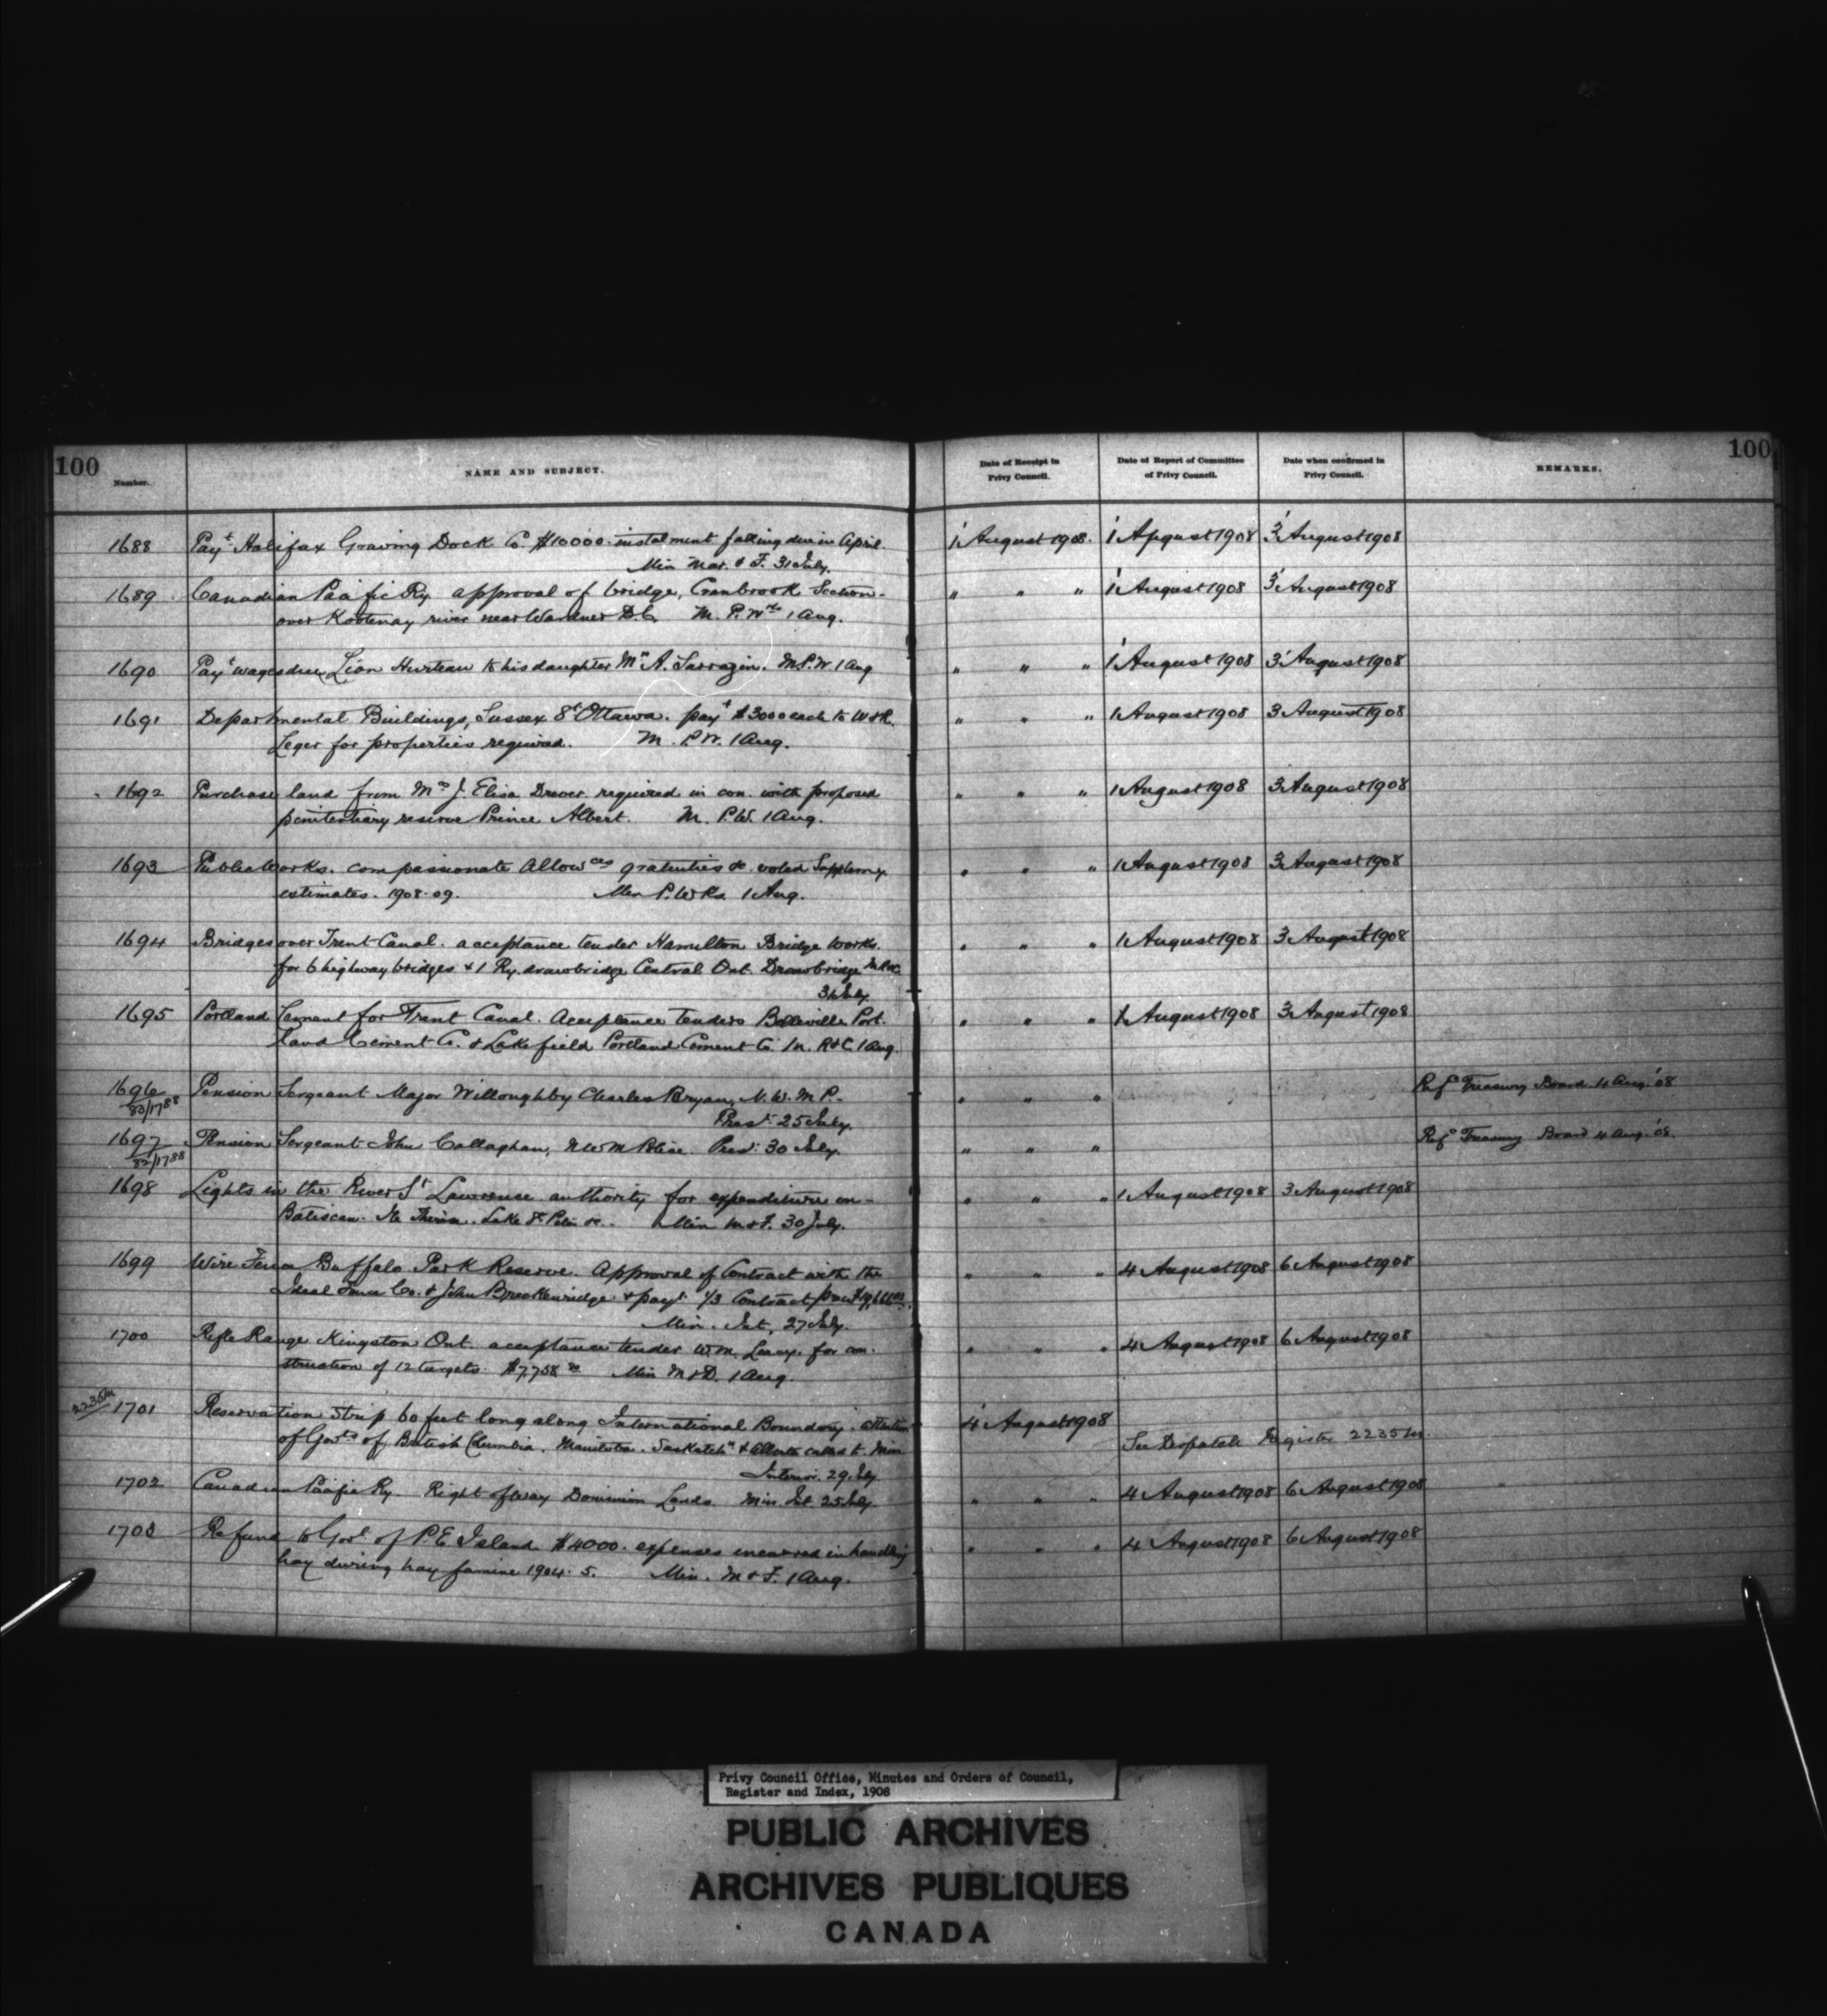 100
100
Number.
NAME AND SUBJECT.
Date of Receipt in Privy Council.
Date of Report of Committee of Privy Council.
Date when confirmed in Privy Council.
REMARKS.
1688 Payt Halifax Graving Dock Co. $10000. instalment falling due in April. 1 August 1908. 1 Apgust 1908 3 August 1908
Min Mar. & F. 31 July.
1689 Canadian Pacific Ry approval of bridge, Cranbrook Section- " " " 1 August 1908 3 August 1908
over Kootenay river near Wardner B.C. M. P. Wks 1 Aug.
1690 Payt wages due Léon Hurteau to his daughter Mrs A. Sarrazin. M.P.W. 1 Aug " " " 1 August 1908 3 August 1908
1691 Departmental Buildings, Sussex St Ottawa. payt $3000 each to W & R. " " " 1 August 1908 3 August 1908
Leger for properties required. M. P.W. 1 Aug.
1692 Purchase land from Mrs J. Eliza Drever required in con. with proposed " " " 1 August 1908 3 August 1908
penitentiary reserve Prince Albert. M. P.W. 1 Aug.
1693 Public Works. compassionate Allowces gratuities &c. voted Supplemy " " " 1 August 1908 3 August 1908
estimates. 1908-09. Min P. Wks. 1 Aug.
1694 Bridges over Trent Canal. acceptance tender Hamilton Bridge Works. " " " 1 August 1908 3 August 1908
for 6 highway bridges & 1 Ry. drawbridge Central Ont. Drawbridge M R&C
31 July.
1695 Portland Cement for Trent Canal. Acceptance tenders Belleville Port- " " " 1 August 1908 3 August 1908
land Cement Co. & Lakefield Portland Cement Co. M. R&C. 1 Aug.
1696 Pension Sergeant Major Willoughby Charles Bryan, N.W.M.P.- " " " Refd Treasury Board 4 Aug. '08
83/1788 Prest. 25 July.
1697 Pension Sergeant John Callaghan, N W M Police. Prest. 30 July. " " " Refd Treasury Board 4 Aug. '08.
82/1788
1698 Lights in the River St Lawrence authority for expenditure on- " " " 1 August 1908 3 August 1908
Batiscan. Ile Thérèse. Lake St Peter &c.- Min M & F. 30 July.
1699 Wire Fence Buffalo Park Reserve. Approval of Contract with the " " " 4 August 1908 6 August 1908
Ideal Fence Co. & John Breckenridge & payt 1/3 Contract price
Min. Int. 27 July.
1700 Rifle Range Kingston Ont. acceptance tender W.M. for con- " " " 4 August 1908 6 August 1908
struction of 12 targets. $7,758 Min M & D. 1 Aug.
2235M 1701 Reservation Strip 60 feet long along International Boundary. attention 4 August 1908
of Govts of British Columbia. Manitoba. Saskatchn & Alberta called to. Min See Despatch Register 2235 M.
Interior 29 July
1702 Canadian Pacific Ry. Right of way Dominion Lands. Min. Int. 25 July " " " 4 August 1908 6 August 1908
1703 Refund to Govt of P.E. Island $4000. expenses incurred in handling " " " 4 August 1908 6 August 1908
hay during hay famine 1904-5. Min. M & F. 1 Aug.
Privy Council Office, Minutes and Orders of Council,
Register and Index, 1908
PUBLIC ARCHIVES
ARCHIVES PUBLIQUES
CANADA